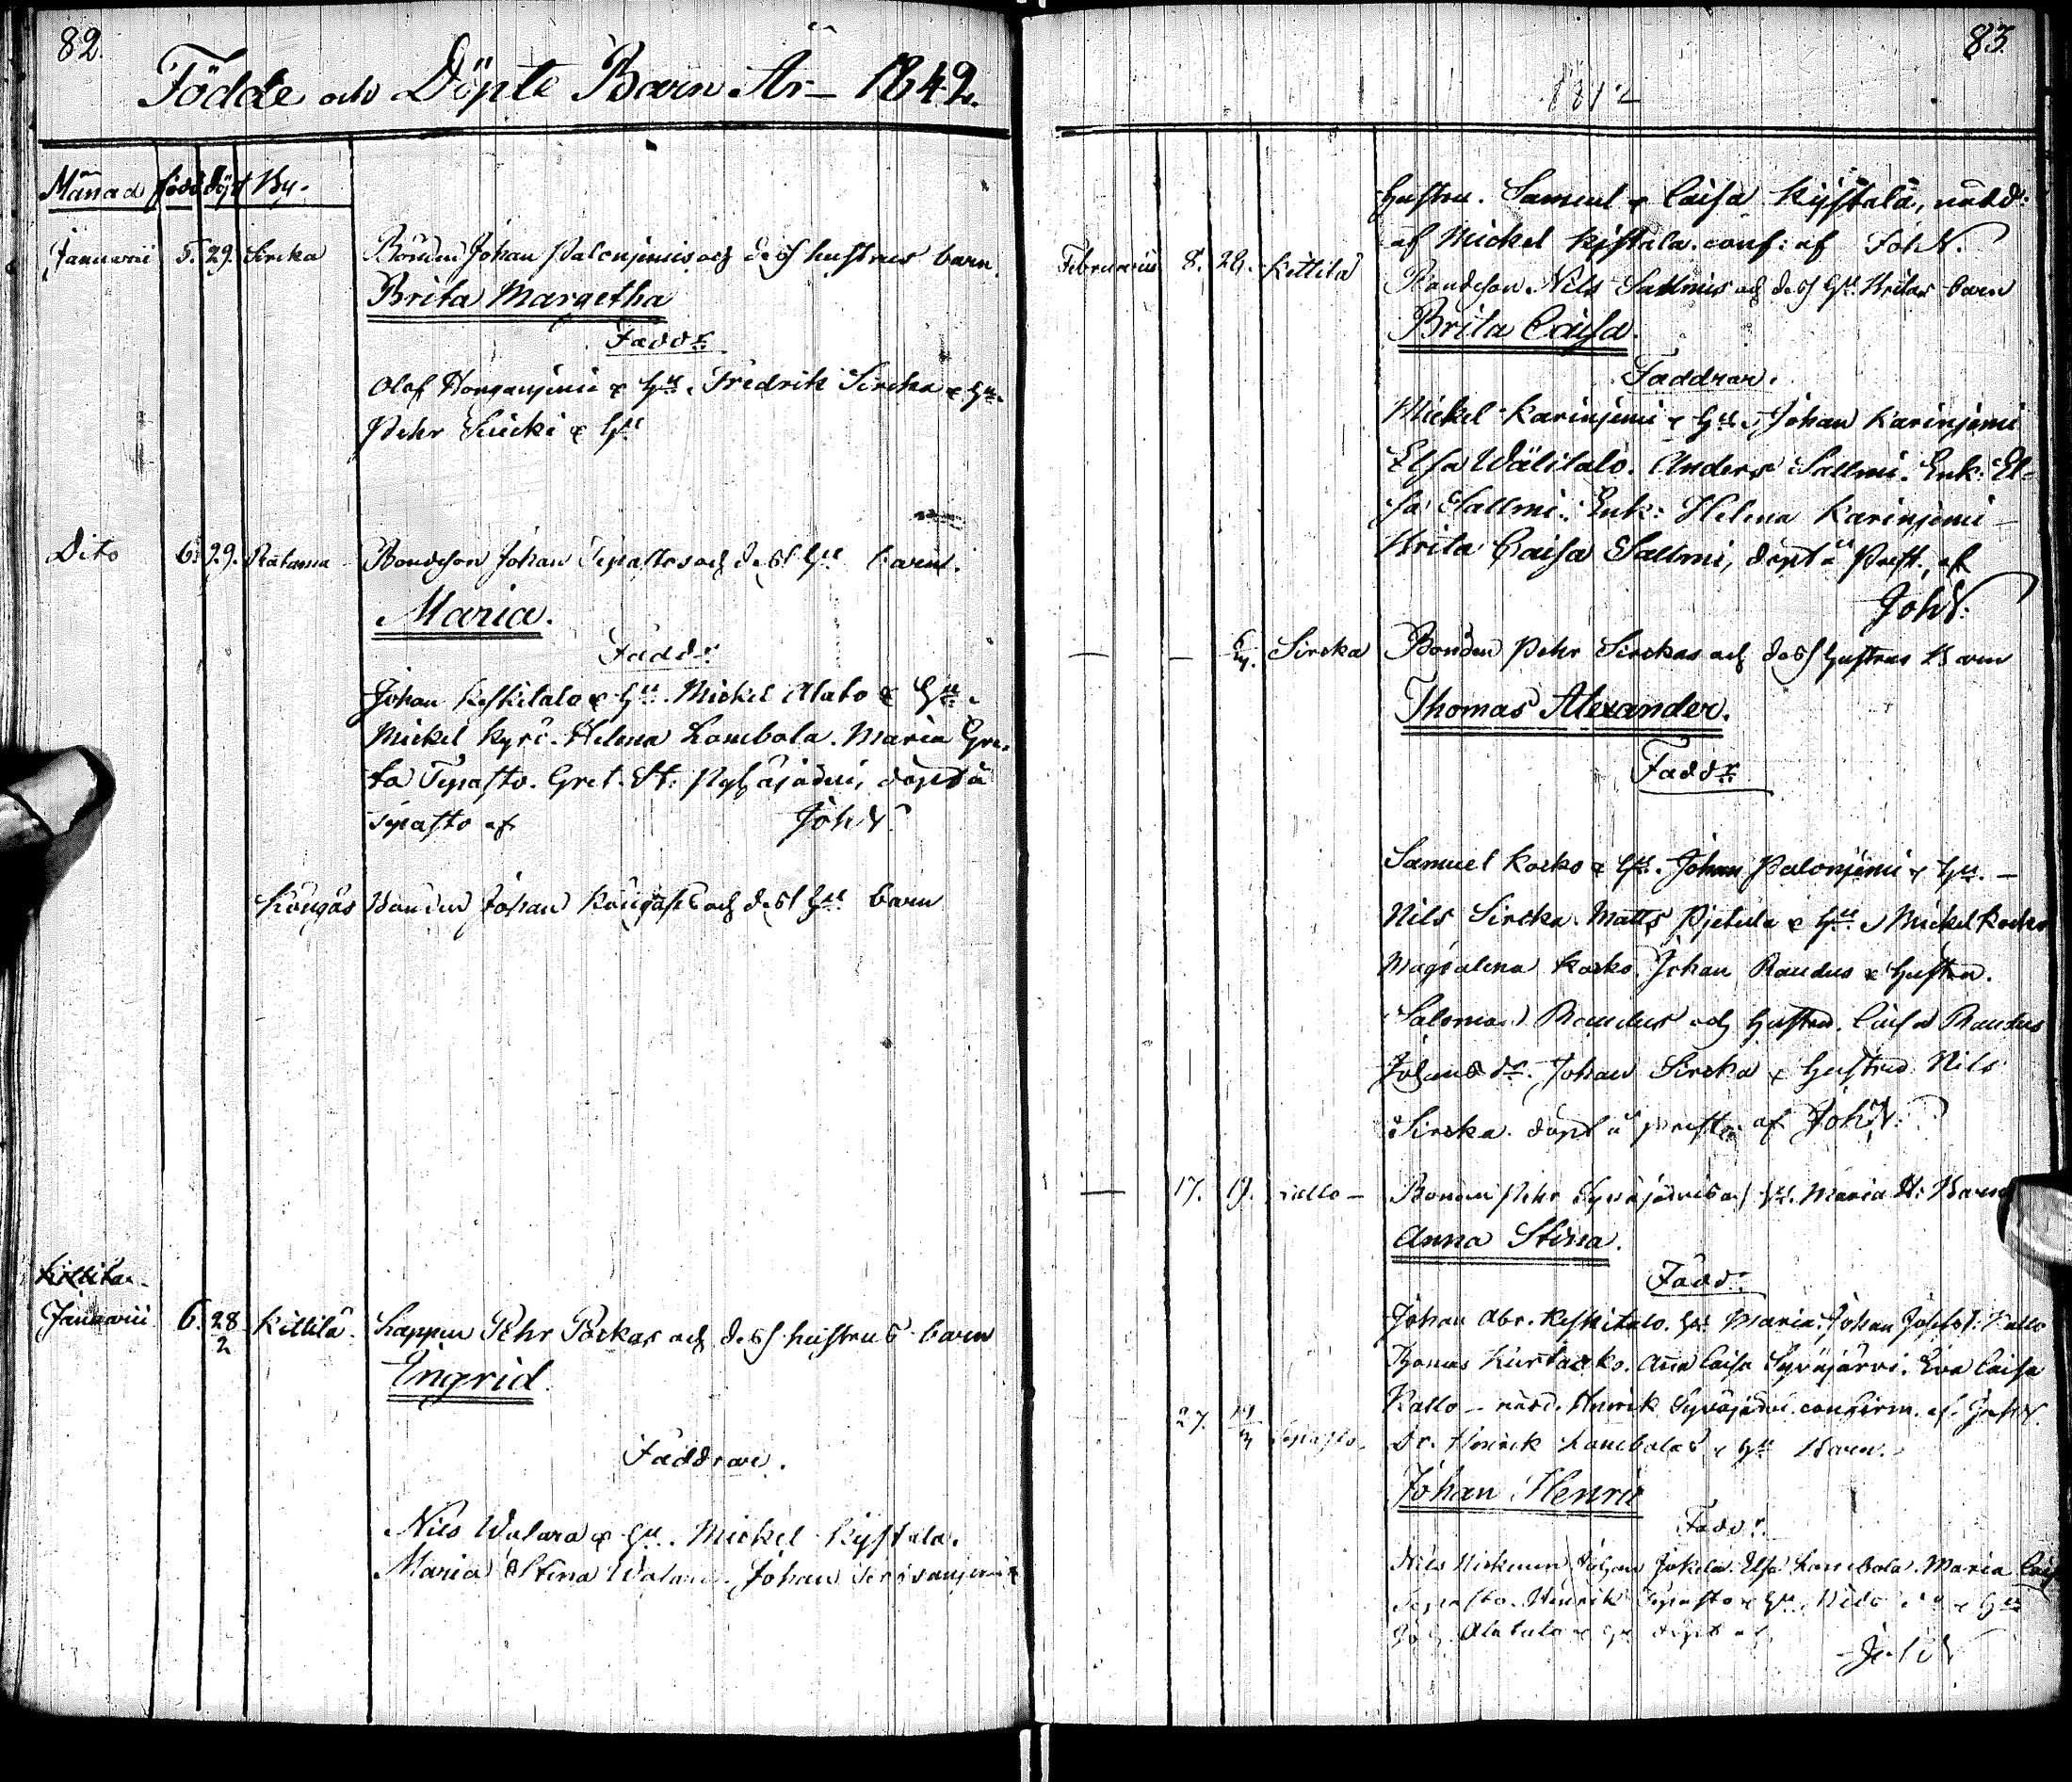 82.
Födde och Döpte Barn År 1842.
Månad född döpt By.
Januarii 5. 29. Sircka Bonden Johan Palonjemis och dess hustrus barn.
Brita Margetha
Fadd:r
Olof Honganjemi & Hu. Fredrik Sircka & Hu.
Pehr Suicki & Hu
Dito 6. 29. Ratama Bondeson Johan Tepastos och dess Hu barn.
Maria.
Fadd:r
Johan Keskitalo & Hu. Mickel Alato & Hu.
Mickel Kyrö. Helena Lombola. Maria Gre-
ta Tepasto. Gret. St. döpt å
Tepasto af Joh W
Köngäs Bonden Johan Köngäs och dess Hu barn
Kittilä
Januarii 6. 28/2 Kittilä. Lappen Pehr Påckas och dess hustrus barn
Engrid
Faddrar.
Nils Walara & Hu. Mickel Kystala.
Maria Stina Johan
83.
1842
Hustru. Samuel & Caisa Kystala, nödd:
af Mickel Kystala. conf: af Joh W.
Februarius 8. 28. Kittilä Bondeson Nils Sallmis och dess Hu Britas barn
Brita Caisa.
Faddrar.
Mickel Karinjemi & Hu. Johan Karinjemi
Elsa Wälitalo. Anders Sallmi. Enk: El-
sa Sallmi. Enk: Helena Karinjemi
Brita Caisa Sallmi, döpt å Prest. af
Joh W.
— — 6/3. Sircka Bonden Pehr Sirckas och dess Hustrus Barn
Thomas Alexander.
Fadd:r
Samuel Kocko & Hu. Johan Palonjemi & Hu. —
Nils Sircka. Matts Pjetula & Hu. Mickel Kocko
Magdalena Kocko. Johan Raudus & Hustru.
Salomon Raudus och Hustru. Caisa Raudus
Johans dr. Johan Sircka & Hustru Nils
Sircka. döpt å prest: af Joh W.
— 17. 19. Rallo — Bonden Pehr Syväjärvis och Hu. Maria H: Barn
Anna Stina.
Fadd:r
Johan Abr. Keskitalo. Hu Maria. Johan Rallo
Thomas Kurtacko. Ana Caisa Syväjärvi. Eva Caisa
Rallo — nödd. Henrik Syväjärvi. confirm. af Joh W
27. 19/3 Tepasto. Dr. Henrik Lombolas & Hu Barn.
Johan Henric
Fadd:r
Nils Niskanen Johan Jokela. Elsa Lombola. Maria Caisa
Tepasto. Henrik Tepasto & Hu. Nils & Hu
Joh. Alatalo & Hu döpt af
Joh W